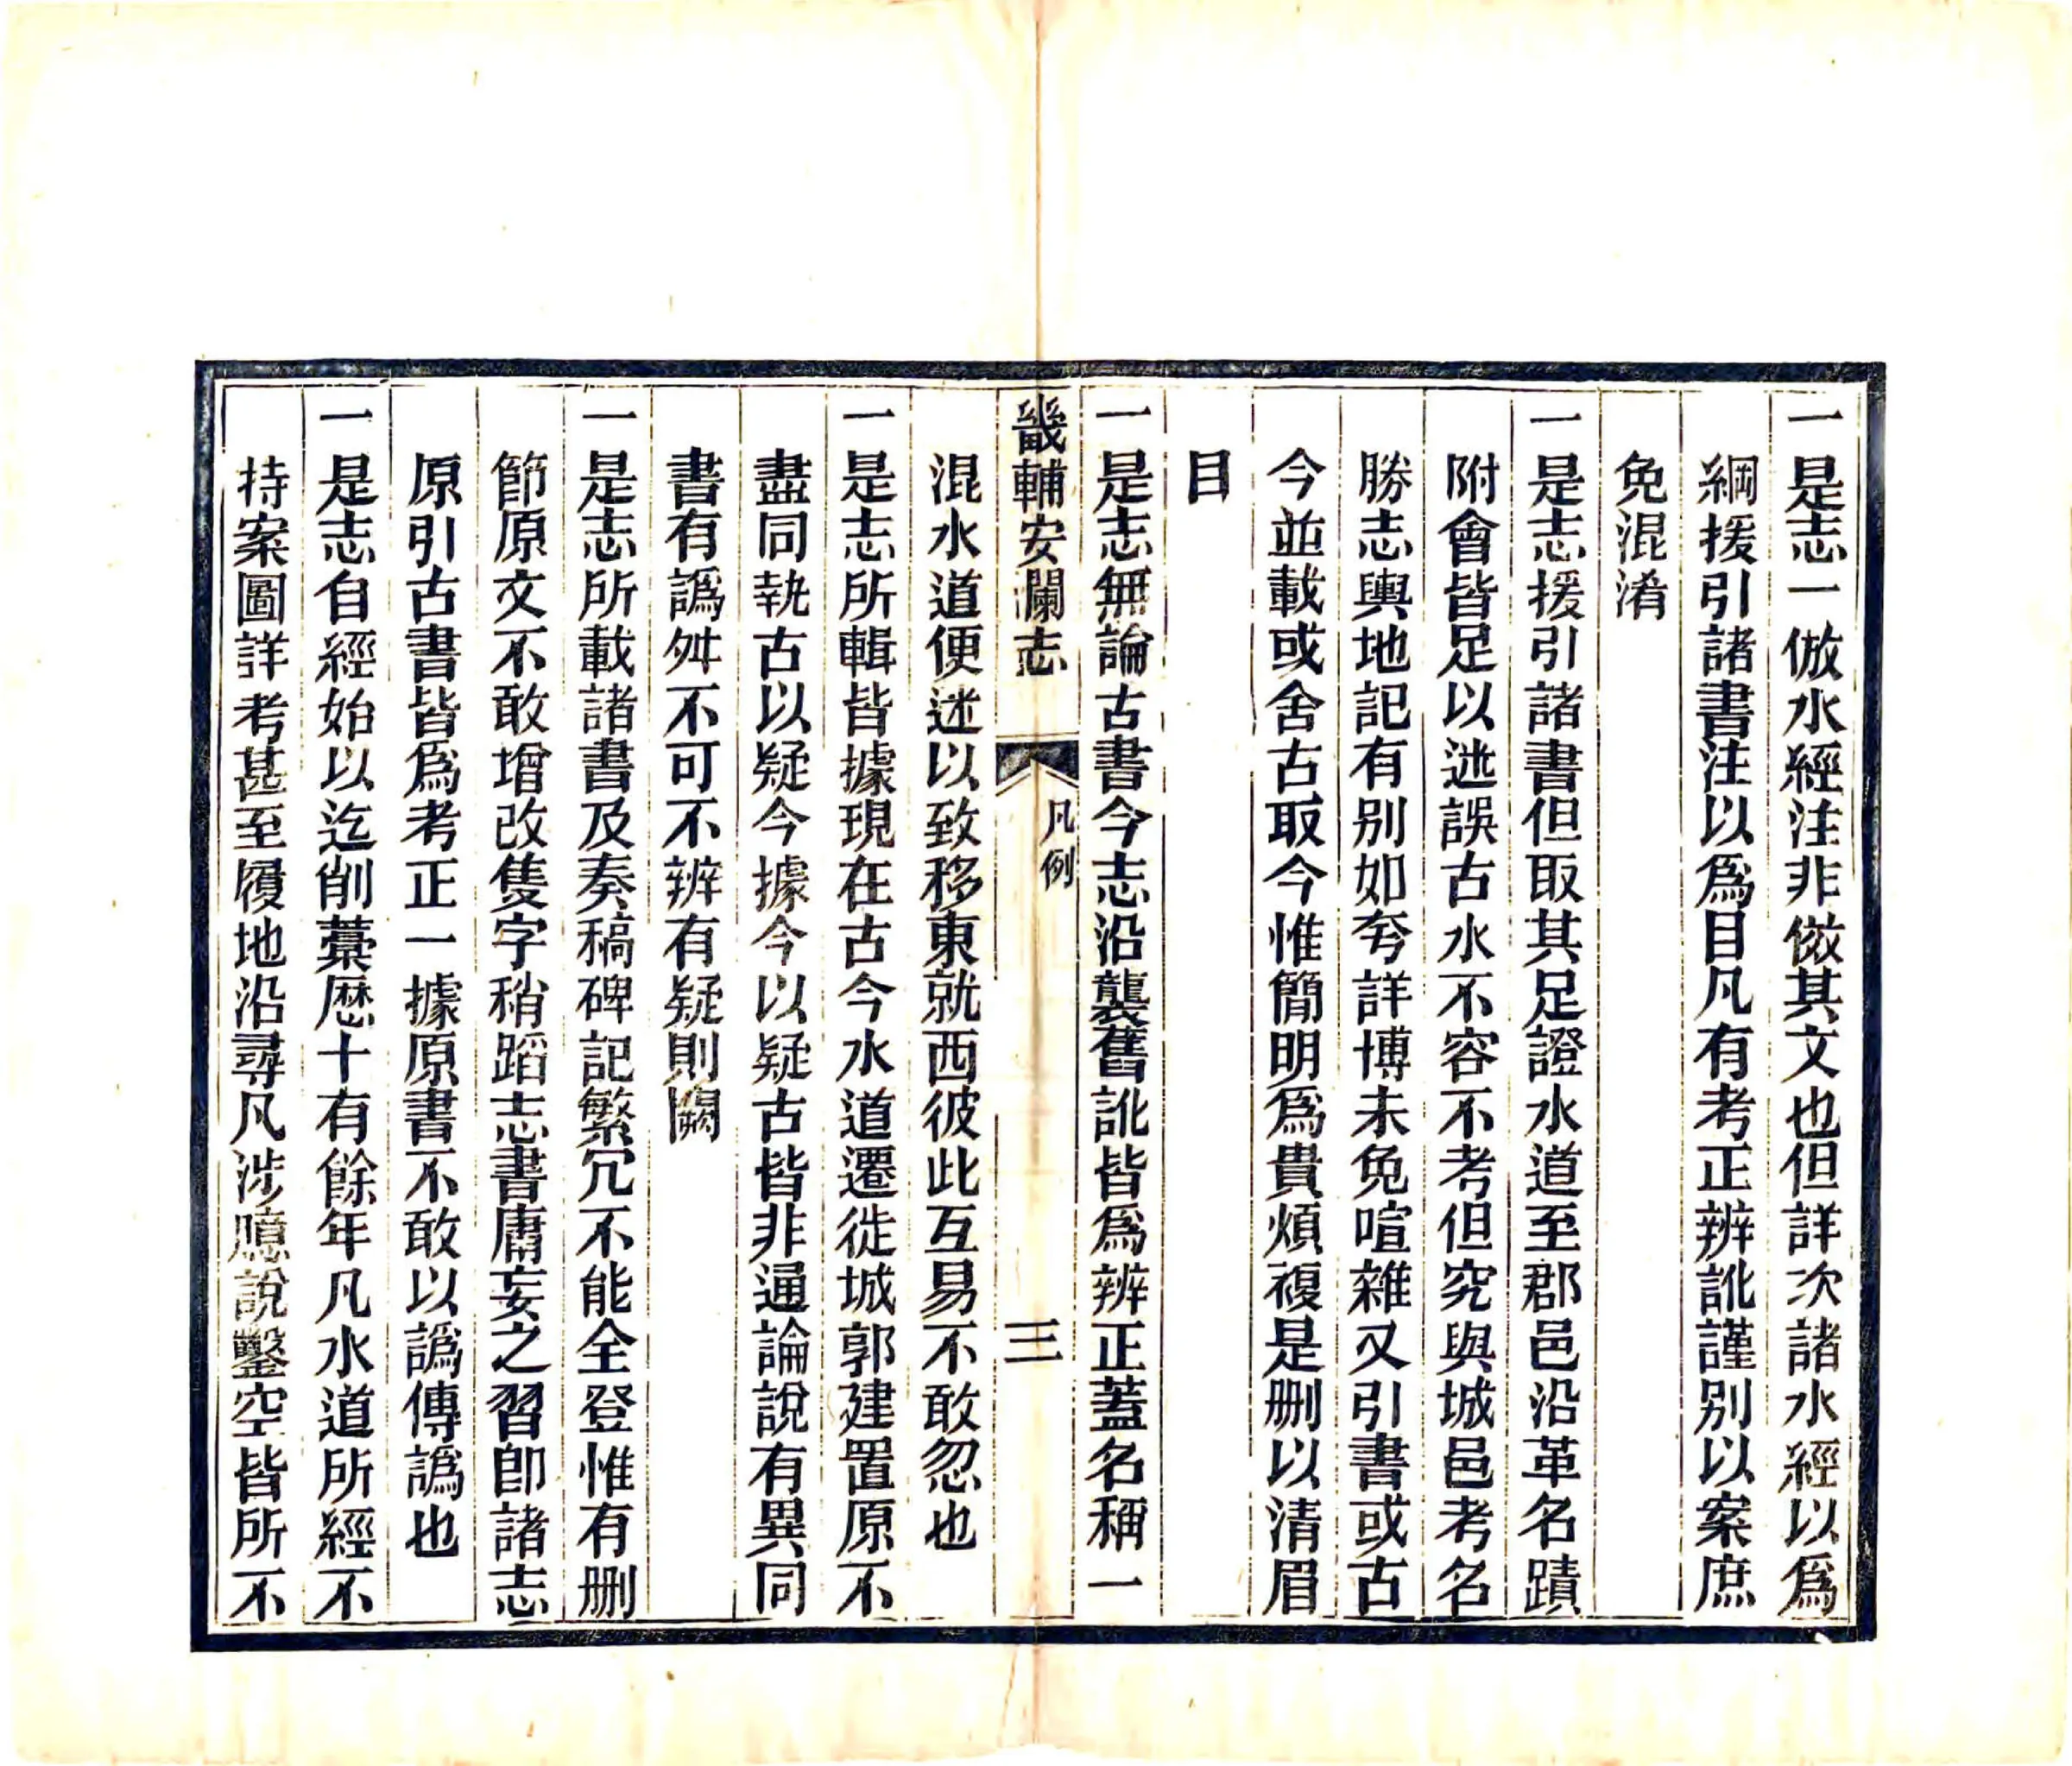 一是志一倣水經注非倣其文也但詳次諸水經以爲
綱援引諸書注以爲目凡有考正辨訛謹别以案庶
免混淆
一是志援引諸書但取其足證水道至郡邑沿革名蹟
附會皆足以迷誤古水不容不考但究與城邑考名
勝志輿地記有别如夸詳博未免喧雜又引書或古
今並載或舍古取今惟簡明爲貴煩複是删以清眉
目
一是志無論古書今志沿襲舊訛皆爲辨正蓋名稱一
畿輔安瀾志
凡例
三
混水道便迷以致移東就西彼此互易不敢忽也
一是志所輯皆據現在古今水道遷徙城郭建置原不
盡同執古以疑今據今以疑古皆非通論說有異同
書有譌舛不可不辨有疑則闕
一是志所載諸書及奏稿碑記繁冗不能全登惟有删
節原文不敢增改隻字稍蹈志書庸妄之習卽諸志
原引古書皆爲考正一據原書不敢以譌傳譌也
一是志自經始以迄削藁厯十有餘年凡水道所經不
持案圖詳考甚至履地沿尋凡涉臆說鑿空皆所不